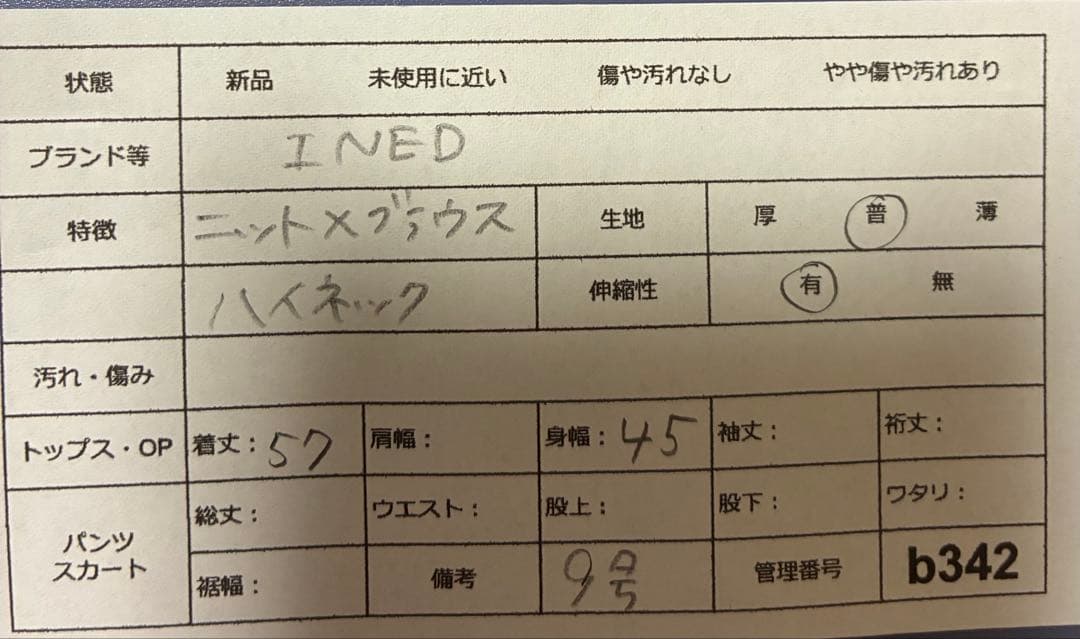 状態 新品 未使用に近い 傷や汚れなし やや傷や汚れあり
ブランド等 INED
特徴 ニット×ブラウス 生地 厚 普 薄
ハイネック 伸縮性 有 無
汚れ・傷み
トップス・OP 着丈：57 肩幅： 身幅：45 袖丈： 裄丈：
パンツ スカート 総丈： ウエスト： 股上： 股下： ワタリ：
裾幅： 備考 9号 管理番号 b342